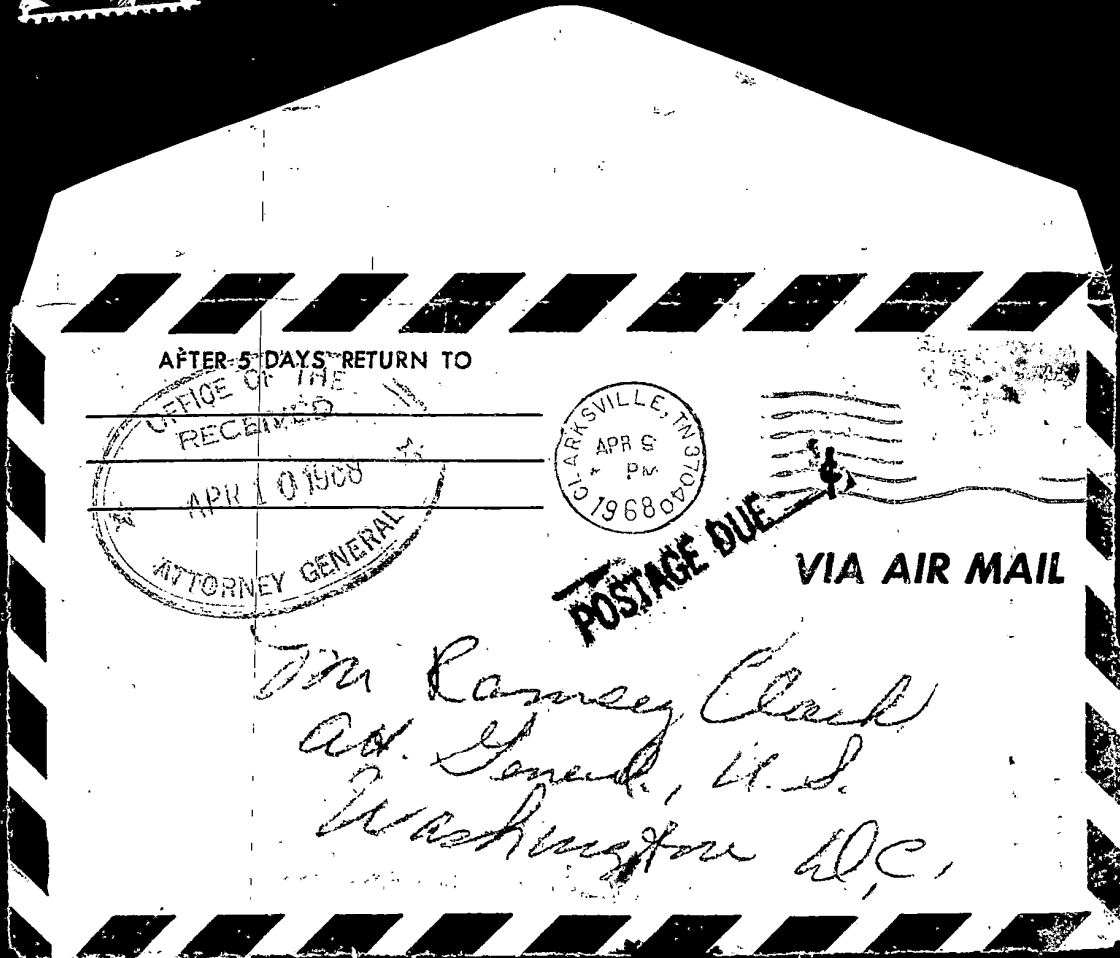 AFTER 5 DAYS RETURN TO
OFFICE OF THE
RECEIVED
APR 10 1968
ATTORNEY GENERAL
CLARKSVILLE, TN 37040
APR 9
PM
1968
POSTAGE DUE ¢
VIA AIR MAIL
Mr Ramsey Clark
Att. General, U.S.
Washington D,C,